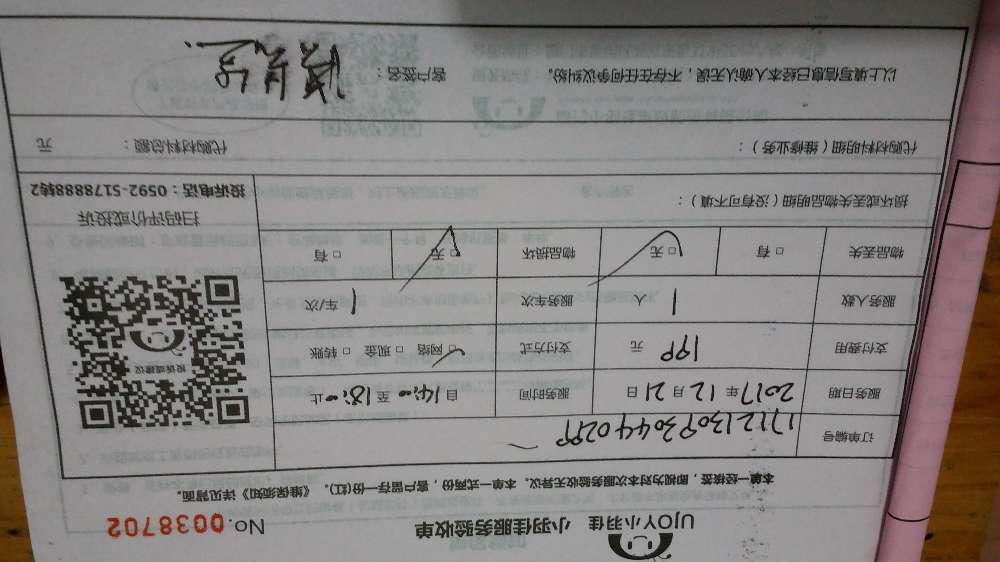 UJOY小羽佳 小羽佳服务验收单 No. 0038702
本单一经核签，即视为对本次服务验收无异议。本单一式两份，客户留存一份(红)。《维保须知》详见背面。
订单编号
服务日期 2017 年 12 月 21 日 服务时间 自 14:00 至 18:00 止
支付费用 199 元 支付方式 □ 网络 □ 现金 □ 转账
服务人数 1 人 服务车次 1 车/次
物品丢失 □ 有 □ 无 物品损坏 □ 无 □ 有
投诉建议
扫码评价或投诉
投诉电话：0592-5178888转2
损坏或丢失物品明细（没有可不填）：
代购材料明细（维修业务）： 代购材料总额： 元
以上填写信息已经本人确认无误，不存在任何争议纠纷。 客户签名：